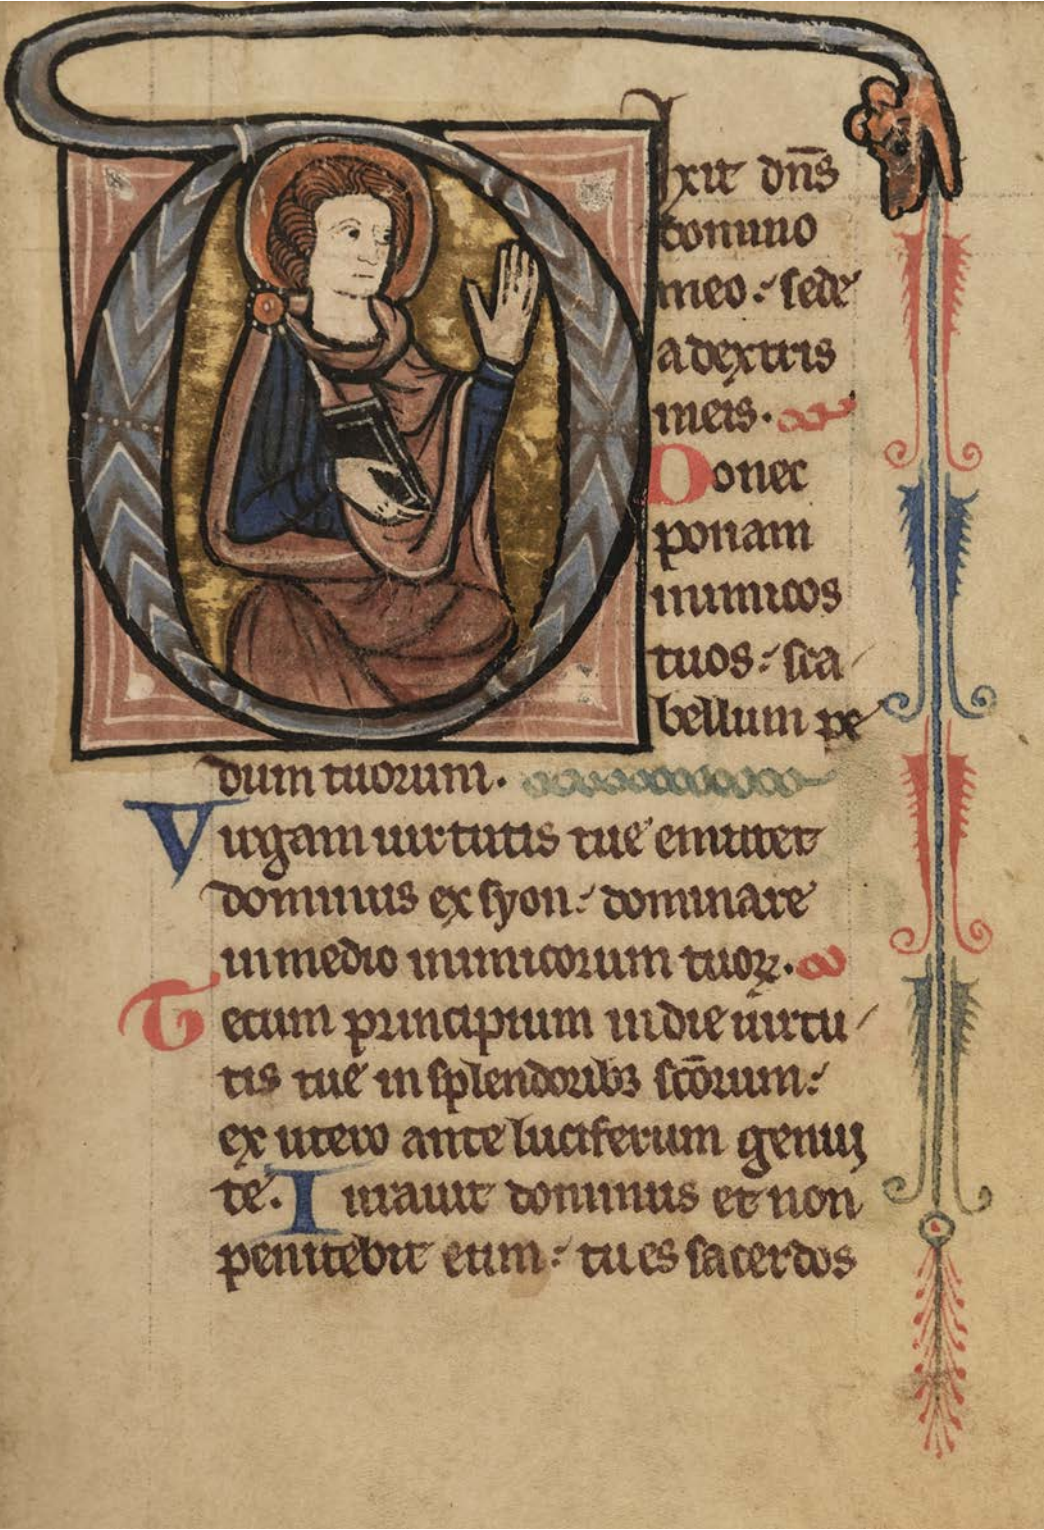 Dixit dn̄s
domino
meo: sede
a dextris
meis.
Donec
ponam
inimicos
tuos: sca
bellum pe
dum tuorum.
Virgam uirtutis tue emittet
dominus ex syon: dominare
in medio inimicorum tuoꝝ.
Tecum principium in die uirtu
tis tue in splendoribꝫ sc̄orum:
ex utero ante luciferum genui
te. Iurauit dominus et non
penitebit eum: tu es sacerdos